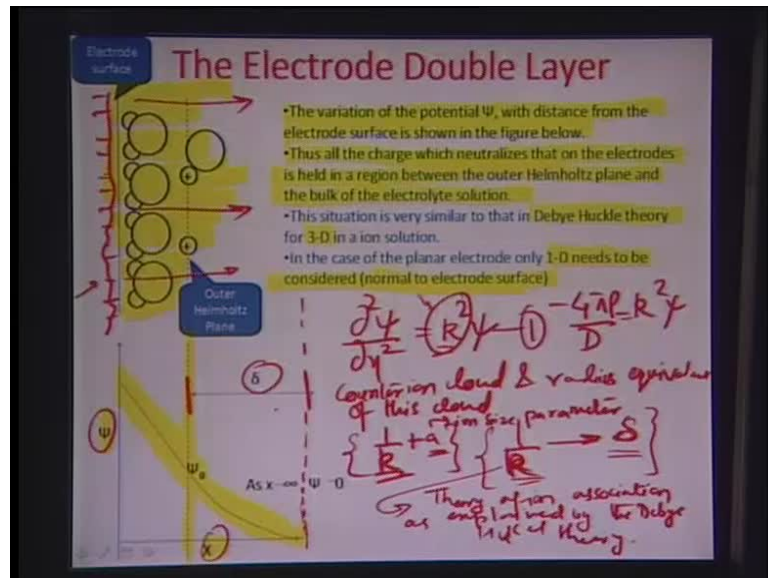 Electrode
surface
The Electrode Double Layer
•The variation of the potential Ψ, with distance from the
electrode surface is shown in the figure below.
•Thus all the charge which neutralizes that on the electrodes
is held in a region between the outer Helmholtz plane and
the bulk of the electrolyte solution.
•This situation is very similar to that in Debye Huckle theory
for 3-D in a ion solution.
•In the case of the planar electrode only 1-D needs to be
considered (normal to electrode surface)
+
+
Outer
Helmholtz
Plane
∂²ψ/∂y² = k²ψ — ① -4πρ/D = k²ψ
Counterion cloud & radius equivalent
of this cloud
→ ion size parameter
{1/k + a} {1/k → δ}
Theory of ion association
as explained by the Debye
Huckel theory.
δ
Ψ
Ψ₀
As x→∞ Ψ→0
x